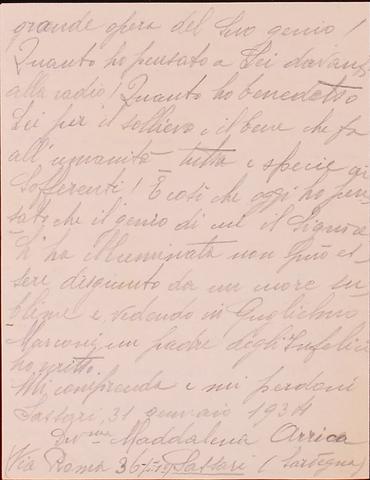 grande opera del Suo genio!
Quanto ho pensato a Lei davanti
alla radio! Quanto ho benedetto
Lei per il sollievo e il bene che fa
all'umanità tutta e specie ai
sofferenti! È così che oggi ho pen-
sato che il genio di cui il Signore
L'ha illuminata non può es-
sere disgiunto da un cuore su-
blime e, vedendo in Guglielmo
Marconi un padre degli Infelici
ho scritto.
Mi comprenda e mi perdoni
Sassari, 31 gennaio 1934
Dev.ma Maddalena Arrica
Via Roma 36 Sassari (Sardegna)